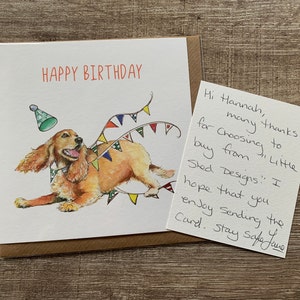 HAPPY BIRTHDAY
Hi Hannah,
many thanks
for choosing to
buy from "Little
Shed Designs". I
hope that you
enjoy sending the
Card. Stay safe Jane